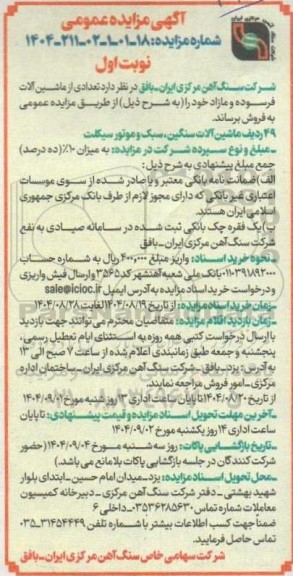 آگهی مزایده عمومی
شماره مزایده: ۱۸-۰۱-۰۲-۲۱۱-۱۴۰۴
نوبت اول
شرکت سنگ آهن مرکزی ایران-بافق در نظر دارد تعدادی از ماشین آلات
فرسوده و مازاد خود را (به شرح ذیل) از طریق مزایده عمومی
به فروش برساند.
۴۹ ردیف ماشین آلات سنگین، سبک و موتور سیکلت
ـ مبلغ و نوع سپرده شرکت در مزایده: به میزان ۱۰٪ (ده درصد)
جمع مبلغ پیشنهادی به شرح ذیل:
الف) ضمانت نامه بانکی معتبر و یا صادر شده از سوی موسسات
اعتباری غیر بانکی که دارای مجوز لازم از طرف بانک مرکزی جمهوری
اسلامی ایران هستند.
ب) یک فقره چک بانکی ثبت شده در سامانه صیادی به نفع
شرکت سنگ آهن مرکزی ایران-بافق
ـ نحوه خرید اسناد: واریز مبلغ ۴۰۰,۰۰۰ ریال به شماره حساب
۰۱۱۰۳۹۱۸۹۲۰۰۰ بانک ملی شعبه آهنشهر کد ۳۵۶۵ و ارسال فیش واریزی
و درخواست خرید اسناد مزایده به آدرس ایمیل sale@icioc.ir
ـ زمان خرید اسناد مزایده: از تاریخ ۱۴۰۴/۰۸/۱۹ لغایت ۱۴۰۴/۰۸/۲۸
ـ زمان بازدید اقلام مزایده: متقاضیان محترم می توانند جهت بازدید
با ارسال درخواست کتبی همه روزه به استثنای ایام تعطیل رسمی،
پنجشنبه و جمعه طبق زمانبندی اعلام شده از ساعت ۷ صبح الی ۱۳
به آدرس: یزد-بافق-شرکت سنگ آهن مرکزی ایران-ساختمان اداره
مرکزی-امور فروش مراجعه نمایند.
از تاریخ ۱۴۰۴/۰۸/۲۰ تا پایان ساعت اداری ۱۳ روز شنبه مورخ ۱۴۰۴/۰۹/۰۱
ـ آخرین مهلت تحویل اسناد مزایده و قیمت پیشنهادی: تا پایان
ساعت اداری ۱۴ روز یکشنبه مورخ ۱۴۰۴/۰۹/۰۲
ـ تاریخ بازگشایی پاکات: روز سه شنبه مورخ ۱۴۰۴/۰۹/۰۴ (حضور
شرکت کنندگان در جلسه بازگشایی پاکات بلامانع می باشد.)
ـ محل تحویل اسناد مزایده: یزد-میدان امام حسین-ابتدای بلوار
شهید بهشتی-دفتر شرکت سنگ آهن مرکزی-دبیرخانه کمیسیون
معاملات شماره تماس ۰۳۵۳۶۲۸۵۶۳۰ داخلی ۶
ضمناً جهت کسب اطلاعات بیشتر با شماره تلفن ۳۱۴۵۴۴۴۹-۰۳۵
تماس حاصل فرمایید.
شرکت سهامی خاص سنگ آهن مرکزی ایران-بافق